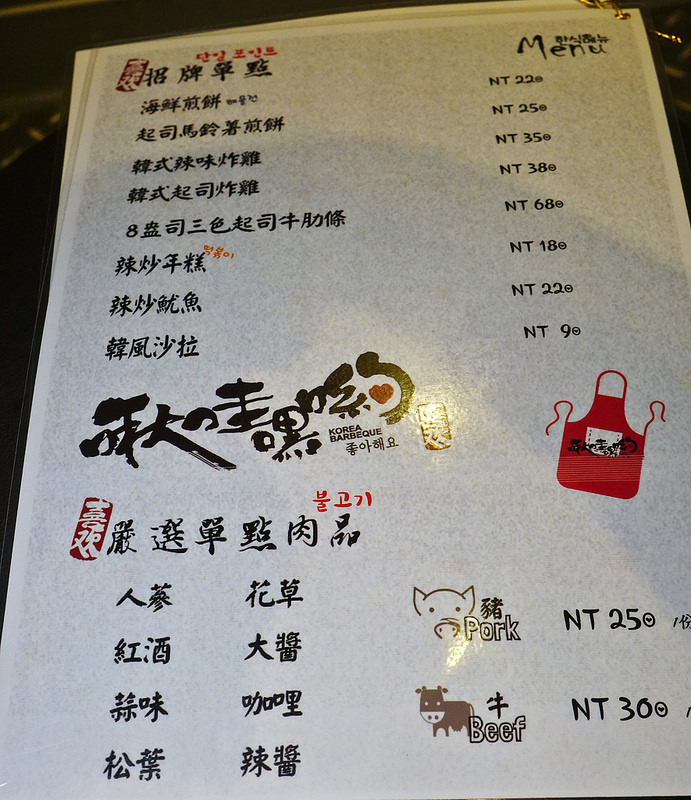 한식메뉴
Menu
단일 포인트
喜歡 招牌單點
海鮮煎餅 해물전 NT 220
起司馬鈴薯煎餅 NT 250
韓式辣味炸雞 NT 350
韓式起司炸雞 NT 380
8盎司三色起司牛肋條 NT 680
辣炒年糕 떡볶이 NT 180
辣炒魷魚 NT 220
韓風沙拉 NT 90
啾哇嘿喲
KOREA
BARBEQUE
좋아해요
불고기
喜歡 嚴選單點肉品
人蔘 花草
紅酒 大醬
蒜味 咖哩
松葉 辣醬
豬 Pork NT 250 /份
牛 Beef NT 300 /